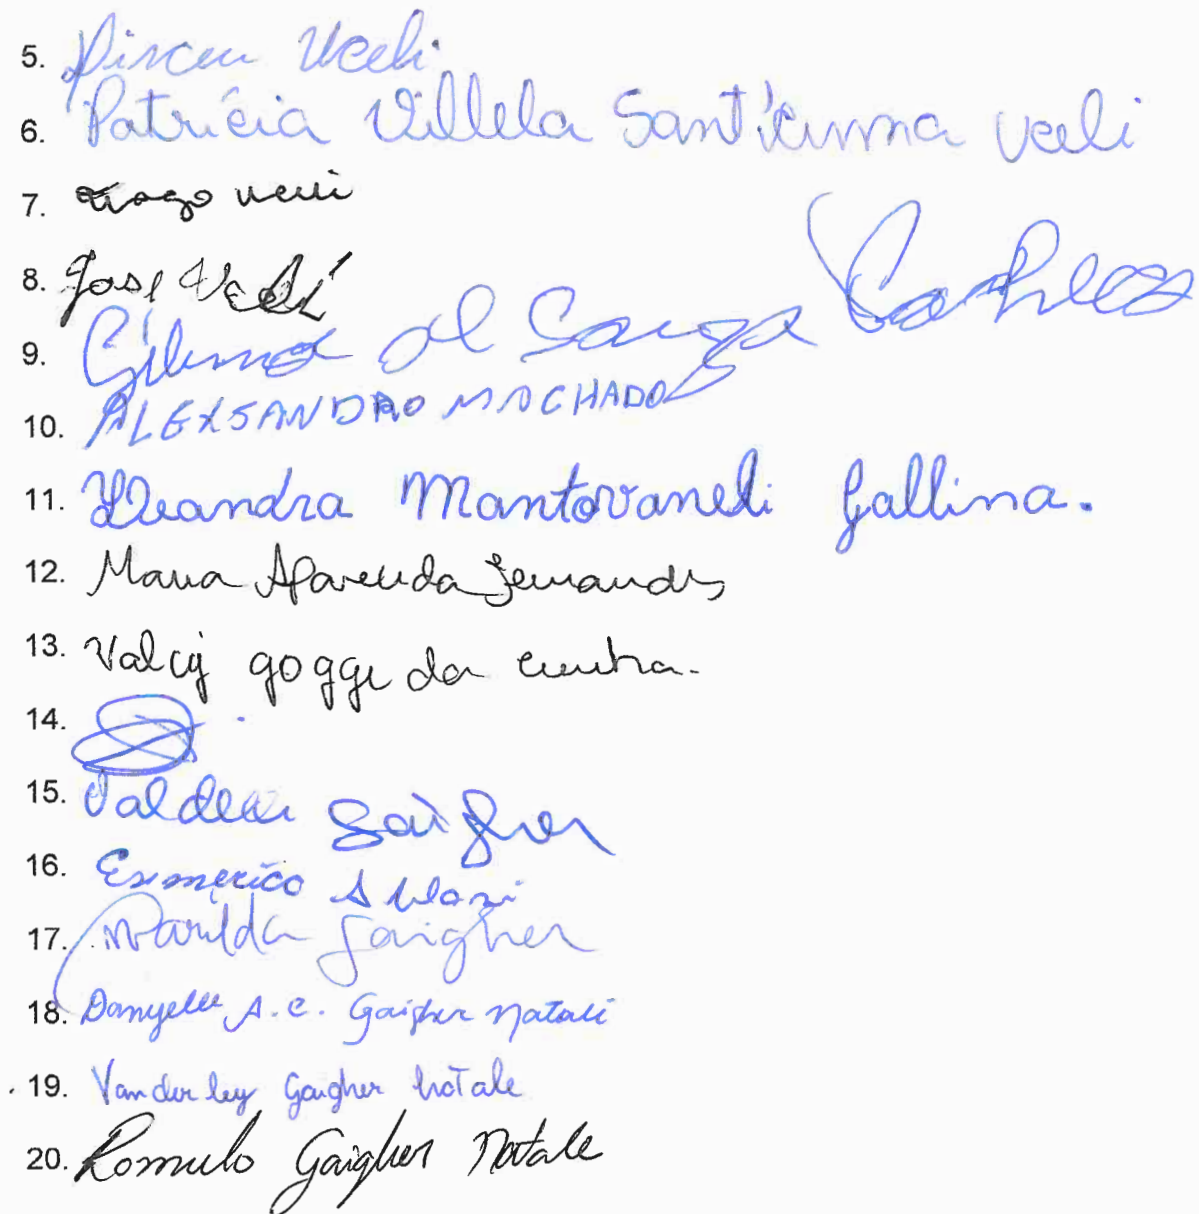 5. Dirceu Uceli
6. Patrícia Villela Sant'Anna Uceli
7. Tiago Uceli
8. José Uceli
9. Gilmar de Souza
10. ALEXSANDRO MACHADO
11. Leandra Mantovaneli Gallina.
12. Maria Aparecida Fernandes
13. Valcy goggi da cunha.
14.
15. Valdeci Gaigher
16. Esmerico
17. Marilda Gaigher
18. Danyelle A.C. Gaigher Natali
19. Vanderley Gaigher Natale
20. Romulo Gaigher Natale